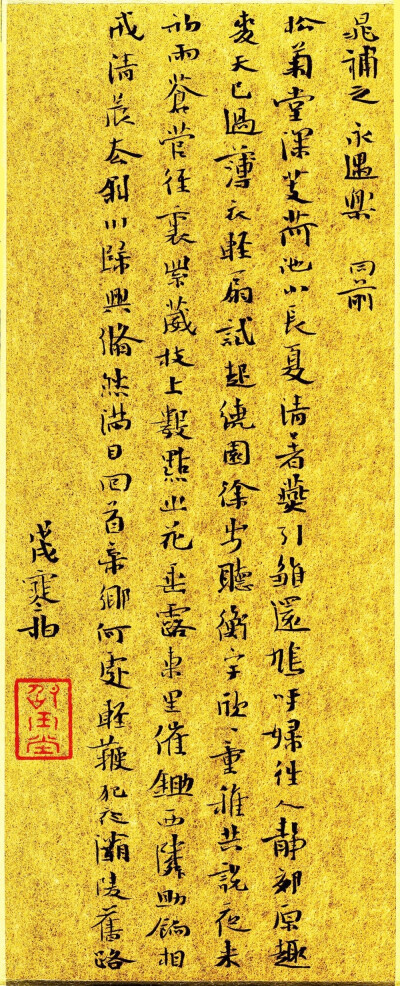 晁補之 永遇樂 同前
松菊堂深芰荷池小長夏清暑燕引雛還鳩呼婦往人靜郊原趣
麥天已過薄衣輕扇試起繞園徐步聽衡宇欣、童稚共說夜來
初雨蒼菅徑裏紫葳枝上數點幽花垂露東里催鋤西鄰助餉相
戒清晨去斜川歸興翛然滿目回首帝鄉何處輕鞭犯夜灞陵舊路